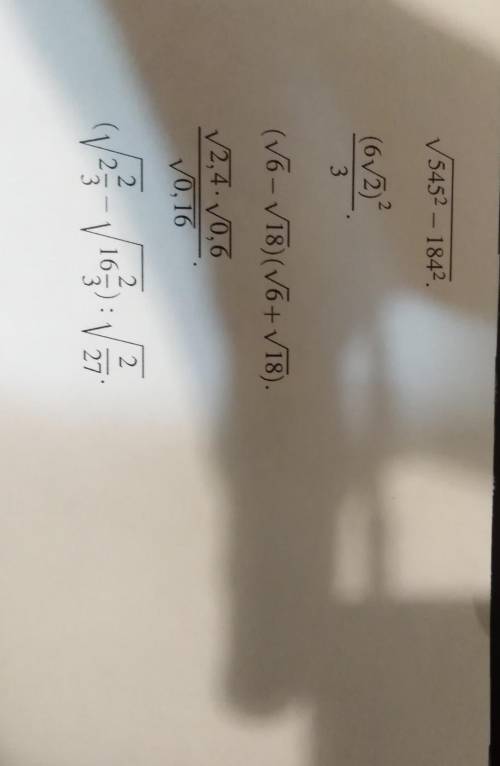 √(545² − 184²).
(6√2)²/3.
(√6 − √18)(√6 + √18).
(√2,4 · √0,6)/√0,16.
(√(2 2/3) − √(16 2/3)) : √(2/27).